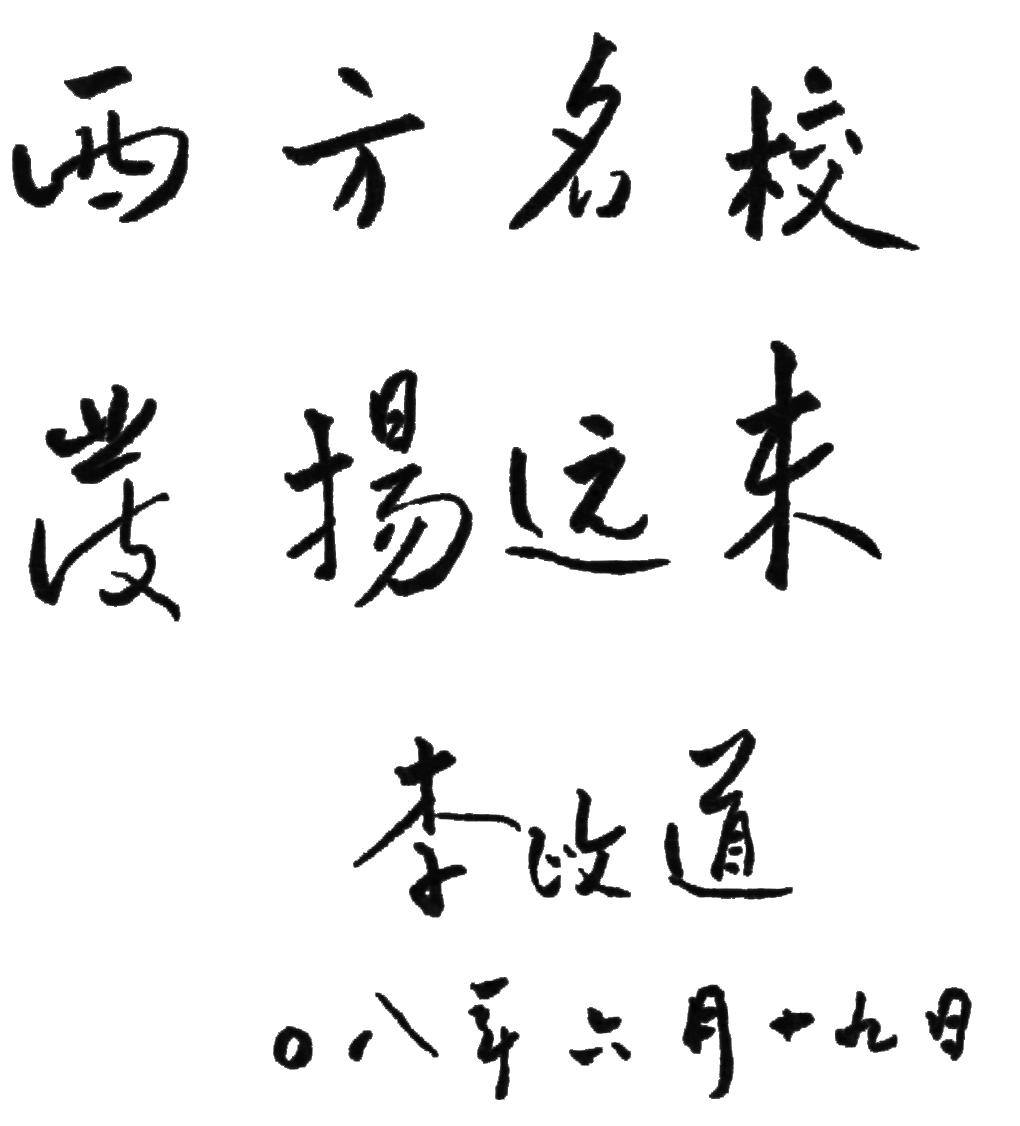 西方名校
發揚远来
李政道
〇八年六月十九日